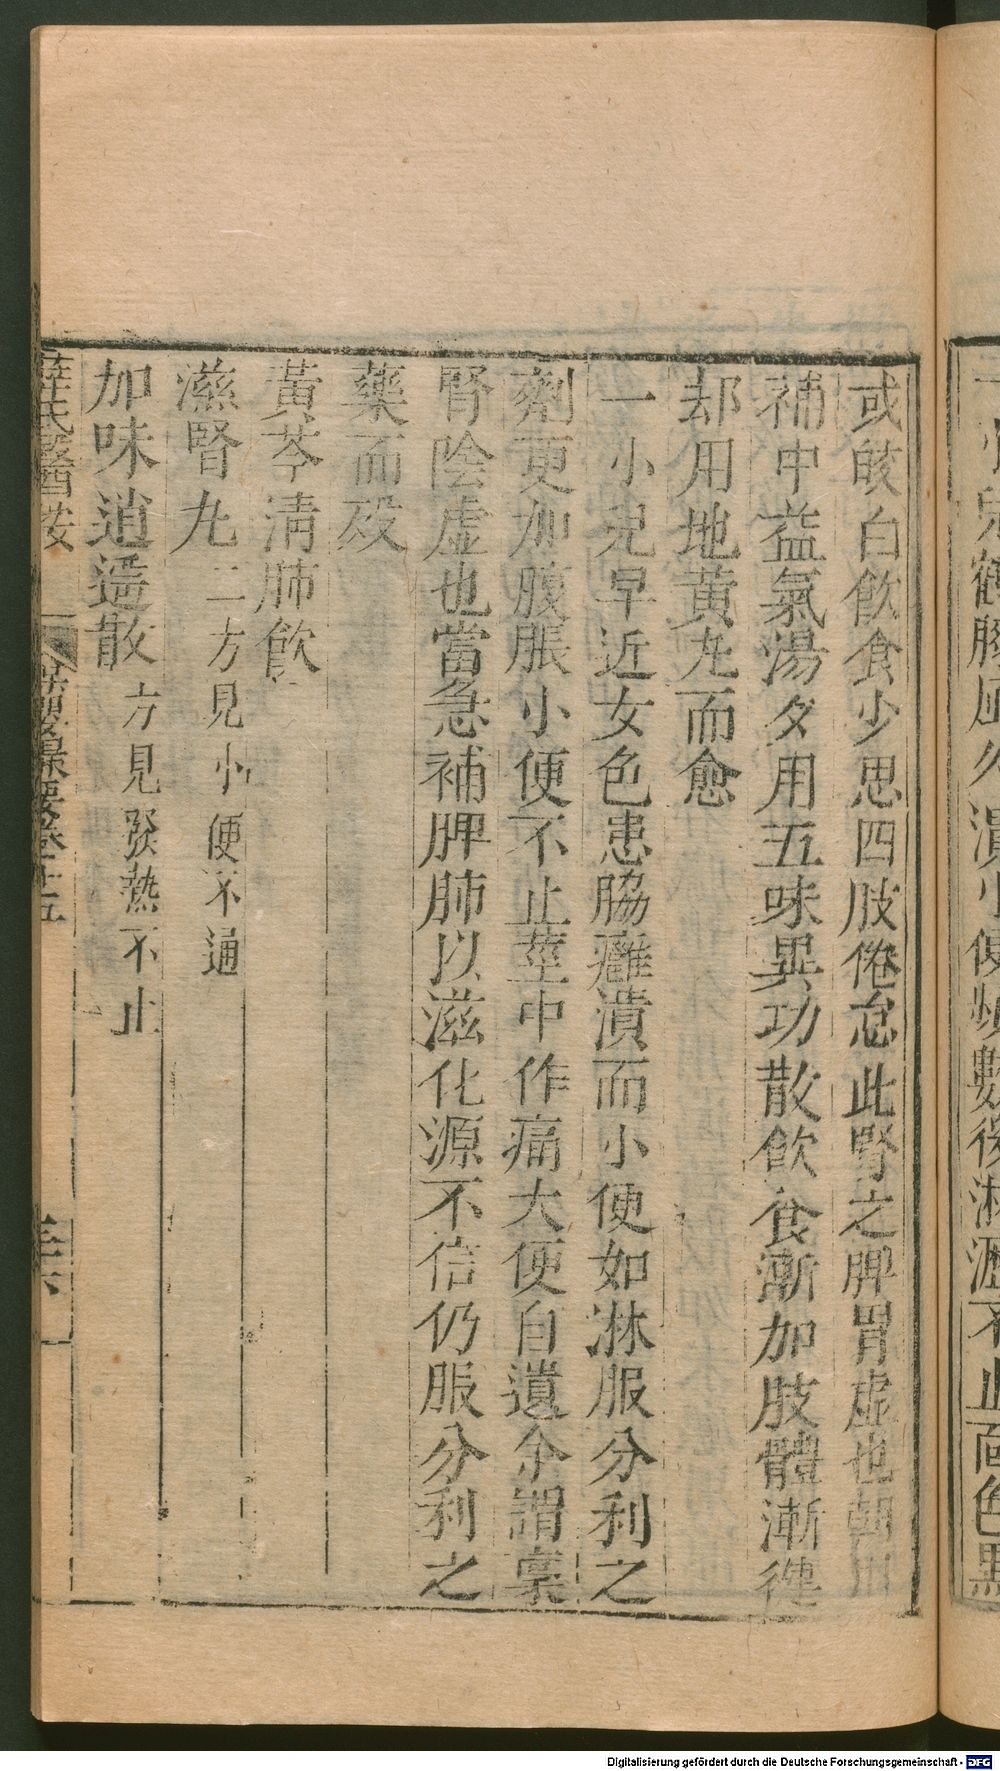 一小兒鶴膝風久潰小便頻數後淋瀝不止面色黑
或皎白飲食少思四肢倦怠此腎之脾胃虛也朝用
補中益氣湯夕用五味異功散飲食漸加肢體漸健
却用地黃丸而愈
一小兒早近女色患脇癰潰而小便如淋服分利之
劑更加腹脹小便不止莖中作痛大便自遺余謂稟
腎陰虛也當急補脾肺以滋化源不信仍服分利之
藥而歿
黃芩清肺飲
滋腎丸 二方見小便不通
加味逍遥散 方見發熱不止
薛氏醫按 保嬰撮要卷十五 三十六
Digitalisierung gefördert durch die Deutsche Forschungsgemeinschaft - DFG